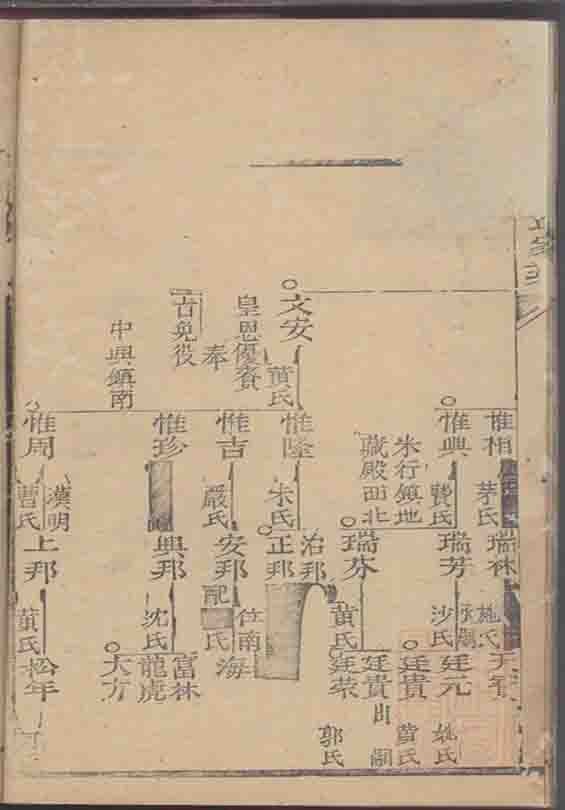 文安
黄氏
皇恩優賚
奉
古免役
中興鎮南
惟相
茅氏
惟興
費氏
朱行鎮地
藏殿田北
惟隆
朱氏
惟吉
嚴氏
惟珍
惟周
漢明
曹氏
瑞林
施氏
瑞芳
沙氏
瑞芬
黄氏
治邦
正邦
安邦
配
氏
位南
海
興邦
沈氏
上邦
黄氏
廷元
姚氏
廷貴
黄氏
廷貴
出嗣
廷荣
郭氏
富林
龍虎
大方
松年